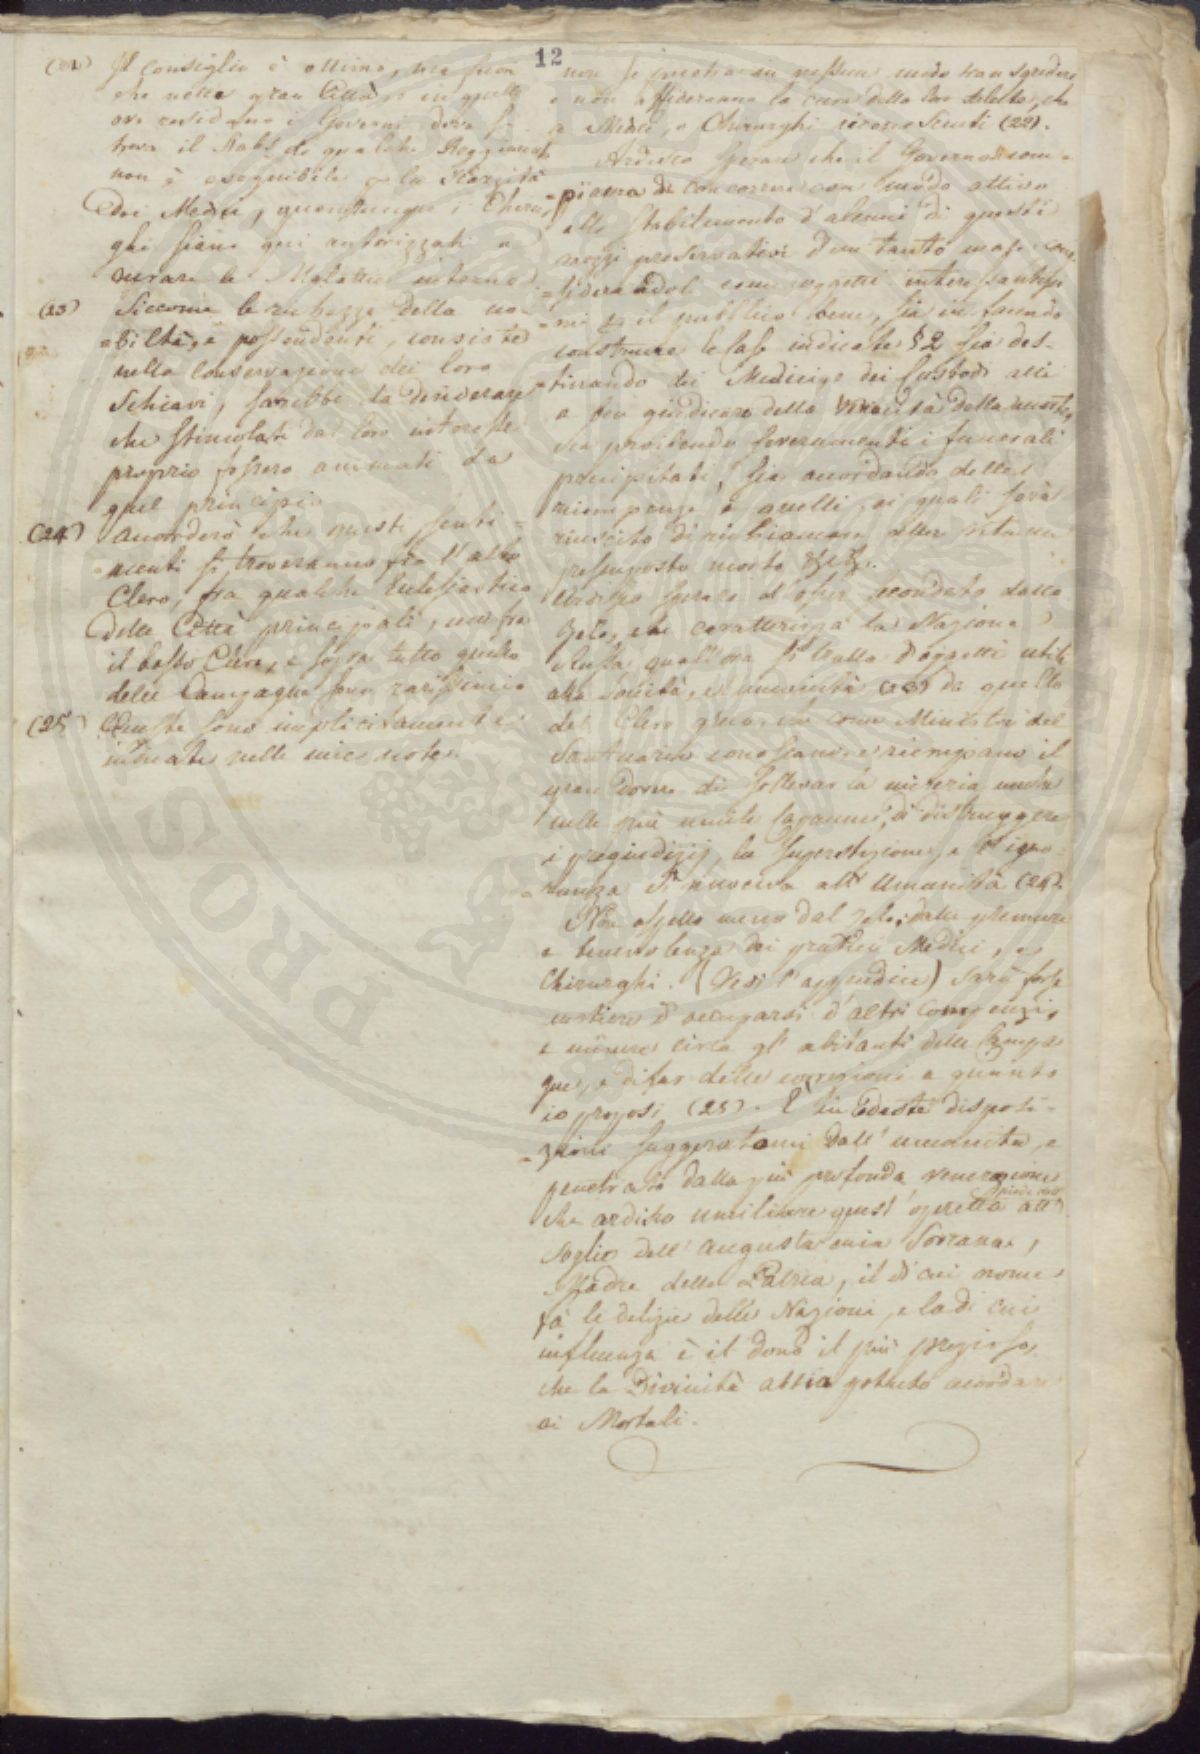 12
(22) Il consiglio è ottimo, ma fuori
che nelle gran Città, o in quelle
ove resedono i Governi, dove si
trova il Stabs di qualche Reggimento
non è eseguibile p la scarsità
dei Medici, quantunque i Chirur
ghi siano qui autorizzati a
curare le Malattie interne
(23) Siccome le richezze della no
=biltà, e possendenti, consiste
nella Conservazione dei loro
Schiavi, sarebbe da desiderare
che stimolati dal loro interesse
proprio fossero animati da
quel principio.
(24) Accorderò che questi senti=
=menti si troveranno fra l'alto
Clero, fra qualche Eclesiastico
delle Città principali, ma fra
il basso Clero, e sopra tutto quello
delle Campagne sono rarissimi.
(25) Queste sono implicitamente
indicate nelle mie note.
non si presterà in nessun modo transgredere
e non affideranno la cura della loro salute, che
a Medici, o Chirurghi riconosciuti (22).
Ardisco sperare che il Governo com=
=piacerà di concorrere con modo attivo
allo stabilimento d'alcuni di questi
mezzi preservativi d'un tanto male con
=siderandoli come oggetti interessantissi
=mi p il pubblico bene, sia in facendo
construere le Case indicate § 2 sia des=
=tinando dei Medici, e dei Custodi atti
a ben giudicare della veracità della morte,
sia proibendo severamente i funerali
precipitati, sia accordando delle
ricompense a quelli, ai quali sarà
riuscito di richiamare alla vita un
pressuposto morto &c &c.
Ardisco sperare d'esser secondato dallo
Zelo, che caratterizza la Nazione
Russa qual'ora si tratta d'oggetti utili
alla Società, e umanità (23) da quello
del Clero che come Ministri del
Santuario conoscano, e riempiano il
gran dovere di sollevar la miseria anche
nelle più umili Capanne, di distruggere
i pregiudizij, la superstizione, e l'igno=
=ranza sì nuociva all' Umanità (24).
Non aspetto meno dal zelo, dalle premure
e benevolenza dei pratici Medici, e
Chirurghi. (Vedi l'appendice) Sarà forse
mestiere d'occuparsi d'altri
e circa gl'abitanti delle Campa
gne, e di far delle correzioni a quanto
io proposi (25). È in codeste disposi=
=zioni suggeratomi dall' umanità, e
penetrato dalla più profonda venerazione
che ardisco umiliare quest' operetta all'
Soglio dell' Augusta mia Sovrana,
Madre della Patria, il di cui nome
fà le delizie delle Nazioni, e la di cui
influenza è il dono il più prezioso,
che la Divinità abbia potuto accordare
ai Mortali.